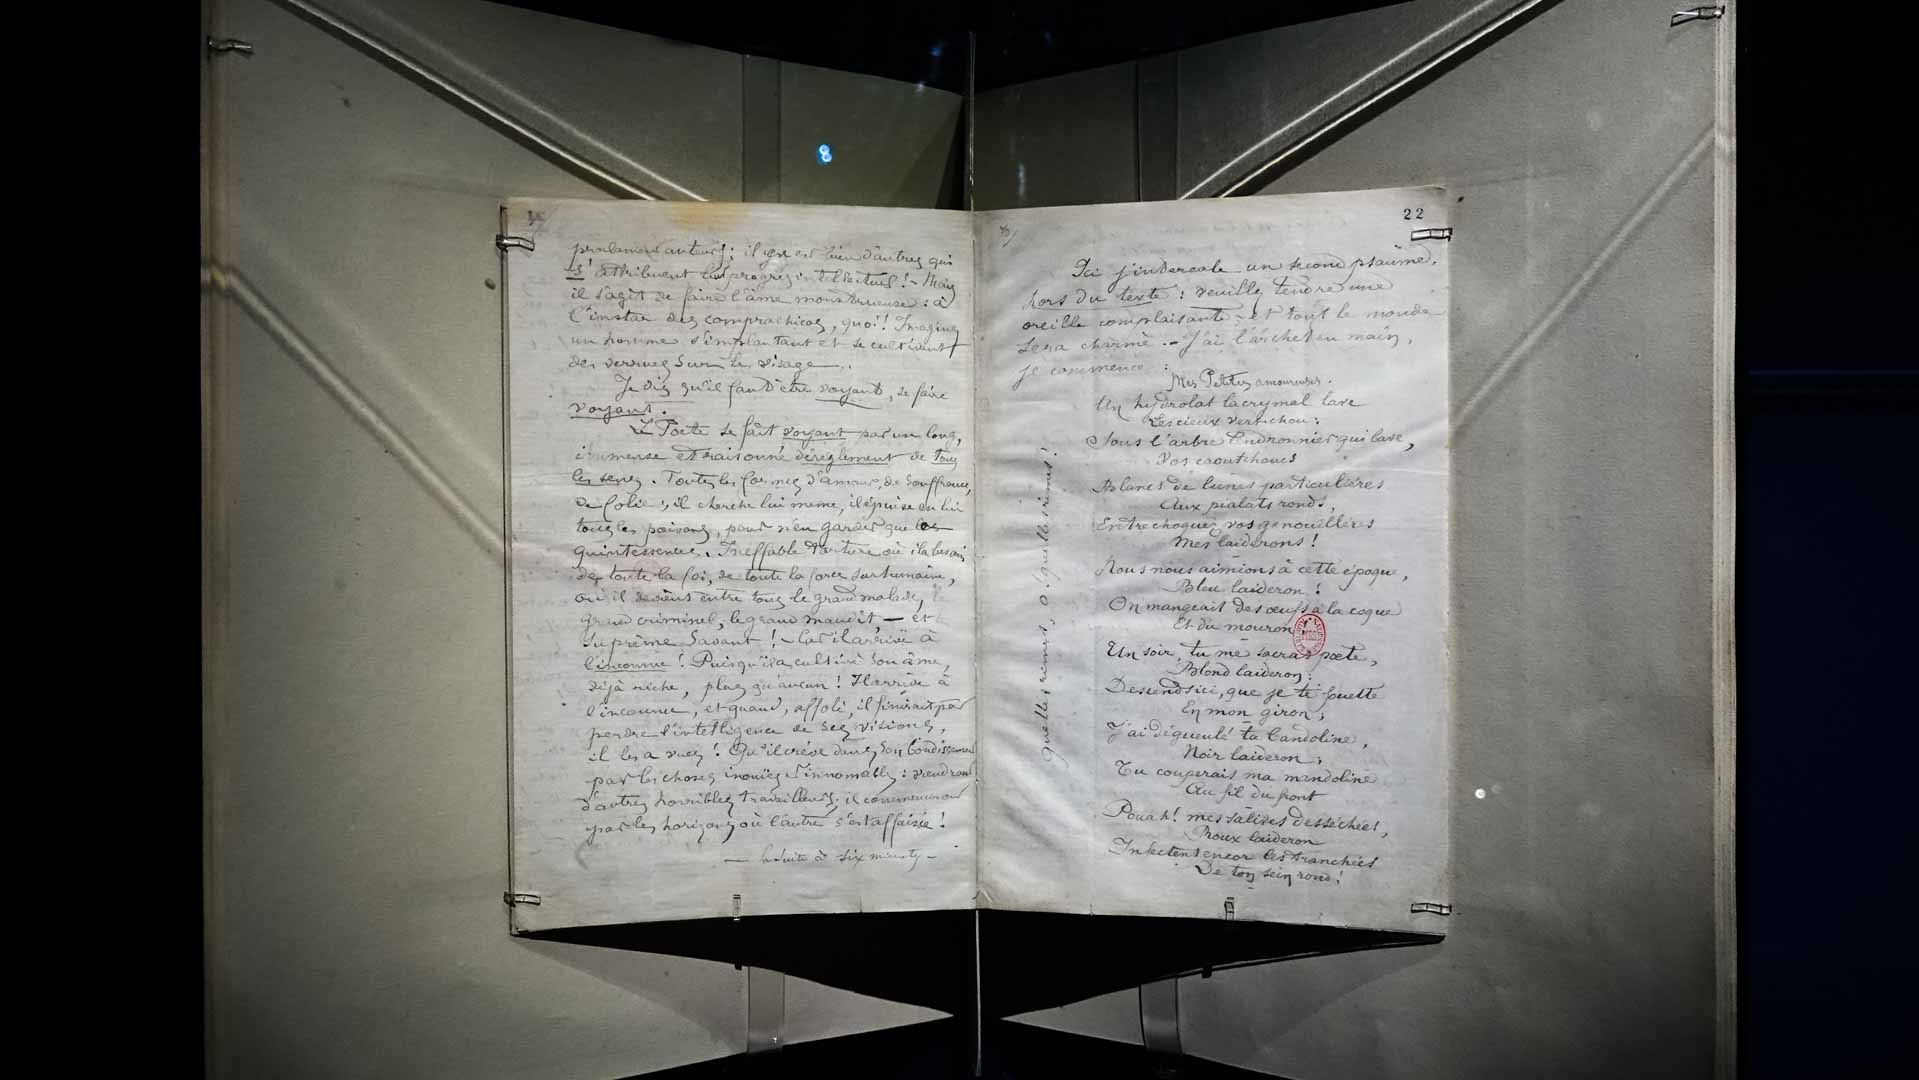 4/
proclament auteurs ; il en est bien d'autres qui
s'attribuent leur progrès intellectuel ! – Mais
il s'agit de faire l'âme monstrueuse : à
l'instar des comprachicos, quoi ! Imaginez
un homme s'implantant et se cultivant
des verrues sur le visage.
Je dis qu'il faut être voyant, se faire
voyant.
Le Poète se fait voyant par un long,
immense et raisonné dérèglement de tous
les sens. Toutes les formes d'amour, de souffrance,
de folie ; il cherche lui même, il épuise en lui
tous les poisons, pour n'en garder que les
quintessences. Ineffable torture où il a besoin
de toute la foi, de toute la force surhumaine,
où il devient entre tous le grand malade, le
grand criminel, le grand maudit, – et le
suprême Savant ! – Car il arrive à
l'inconnu ! Puisqu'il a cultivé son âme,
déjà riche, plus qu'aucun ! Il arrive à
l'inconnu, et quand, affolé, il finirait par
perdre l'intelligence de ses visions,
il les a vues ! Qu'il crève dans son bondissement
par les choses inouïes et innomables : viendront
d'autres horribles travailleurs ; il commenceront
par les horizons où l'autre s'est affaissé !
– la suite à six minutes –
22
Ici j'intercale un second psaume,
hors du texte : veuillez tendre une
oreille complaisante, – et tout le monde
sera charmé. – J'ai l'archet en main,
je commence :
Mes Petites amoureuses.
Un hydrolat lacrymal lave
Les cieux vert-chou :
Sous l'arbre tendronnier qui bave,
Vos caoutchoucs
Blancs de lunes particulières
Aux pialats ronds,
Entrechoquez vos genouillères
Mes laiderons !
Nous nous aimions à cette époque,
Bleu laideron !
On mangeait des œufs à la coque
Et du mouron !
Un soir, tu me sacras poète,
Blond laideron :
Descends ici, que je te fouette
En mon giron ;
J'ai dégueulé ta bandoline,
Noir laideron ;
Tu couperais ma mandoline
Au fil du front
Pouah ! mes salives desséchées,
Roux laideron
Infectent encor les tranchées
De ton sein rond !
quelles rimes, ô ! quelles rimes !